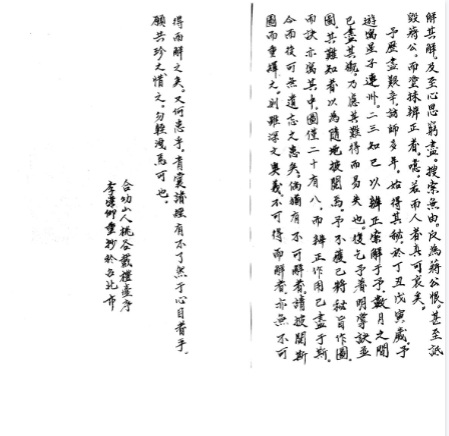 解其解，及至心思窮盡。搜索無由。反為蔣公恨。甚至詆
毀蔣公。而塗抹辨正者。噫。若而人者真可哀矣。
予歷盡艱辛。訪師多年。始得其秘。於丁丑戊寅歲。予
遊寓星子連州。二三知己以辨正索解于予。數月之間
已盡其概。乃慮其難得而易失也。復乞予著明掌訣並
圖。其難知者以為隨地披閱焉。予不獲已將秘旨作圖。
而訣亦寓其中。圖僅二十有八。而辨正作用已盡于斯。
今而後可無遺忘之患矣。倘猶有不可解者。請披閱斯
圖而重繹之。則雖深文奧義。不可得而解者。亦無不可
得而解之矣。又何忝乎。青囊諸理有不了然于心目者乎。
願共珍之惜之。勿輕洩焉可也。
合功山人桃谷戴禮臺序
李崇仰重抄於台北市